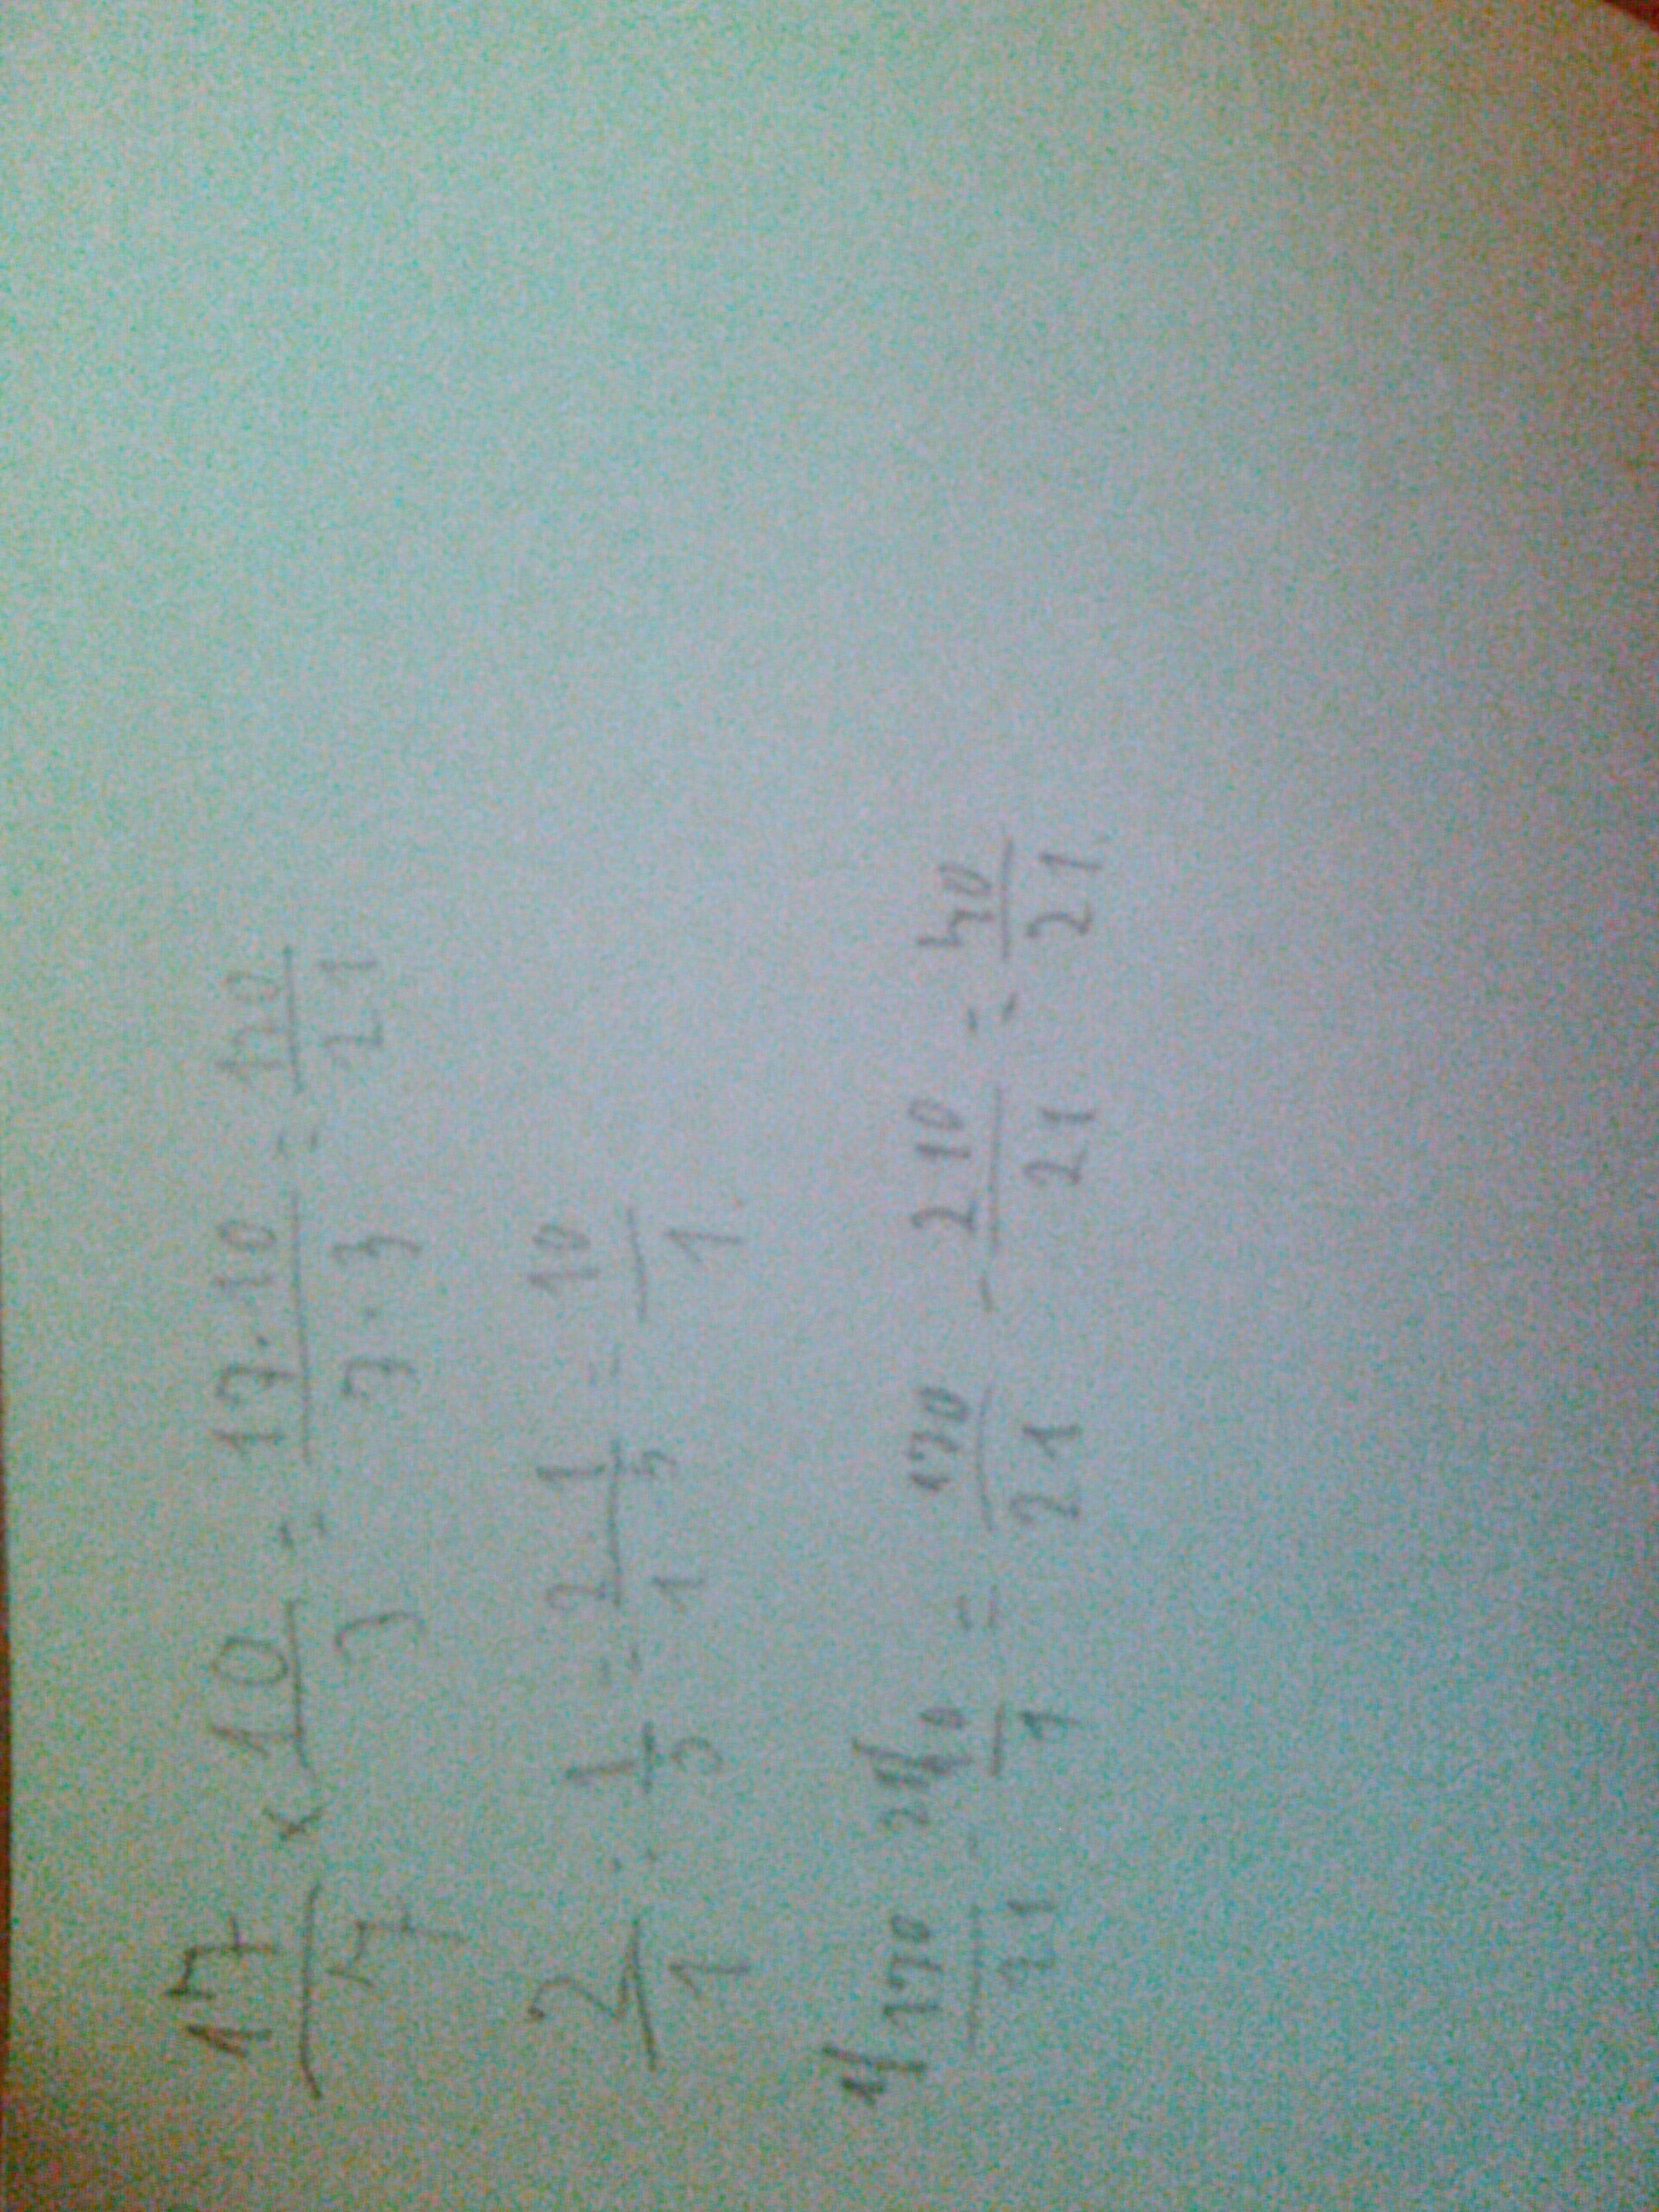 17/7 × 10/3 = 17·10/7·3 = 170/21
2/1 : 1/5 = 2/1 1/5 = 10/1.
1/ 170/21 - 21/ 10/1 = 170/21 - 210/21 = 40/21.